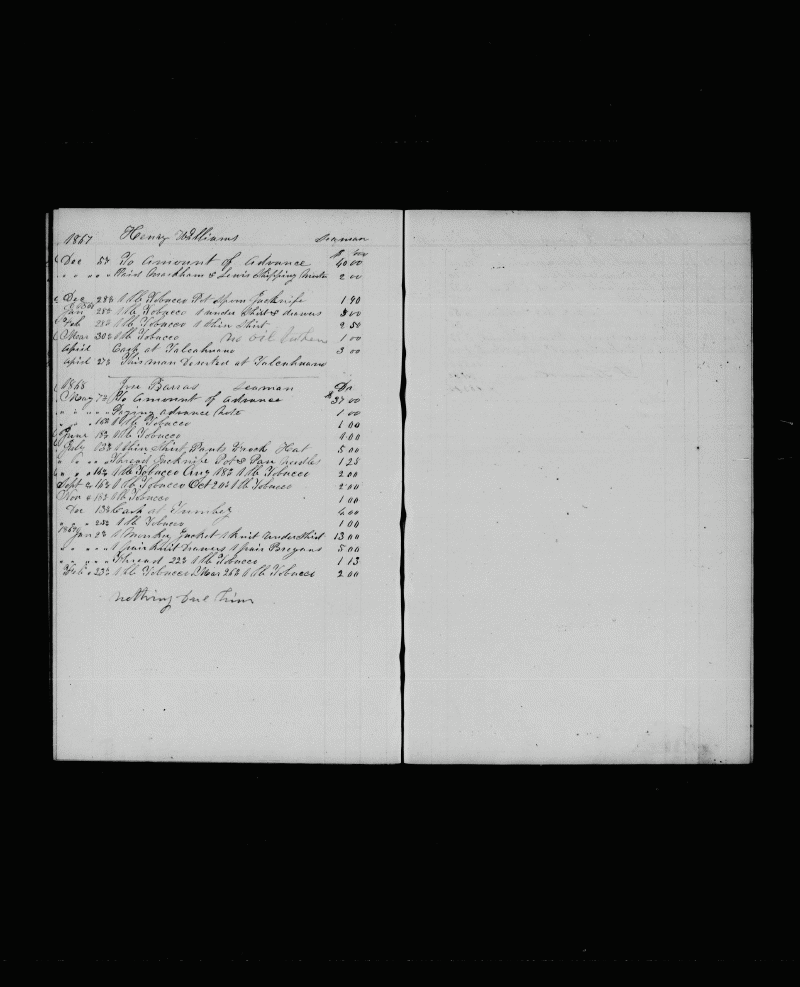 1867 Henry Williams Seaman
Dec 5th To Amount of Advance 40 00
" " " " Paid Markham & Lewis Shipping 2 00
Dec 28th 1 lb Tobacco Pot Spoon Jacknife 1 90
1868
Jan 28th 1 lb Tobacco 1 under Shirt & drawers 5 00
Feb 28th 1 lb Tobacco 1 Thin Shirt 2 50
Mar 30th 1 lb Tobacco no oil taken 1 00
April Cash at Talcahuano 3 00
April 27th This man Deserted at Talcahuano
1868 Joe Barras Seaman Dr
May 7th To Amount of advance $37 00
" " " " Paying advance Note 1 00
" " 16th 1 lb Tobacco 1 00
June 18th 1 lb Tobacco 1 00
July 13th 1 thin Shirt, Pants Frock Hat 5 00
" " " " Thread Jacknife Pot & Pan Needles 1 25
" " " 16th 1 lb Tobacco Aug 18th 1 lb Tobacco 2 00
Sept 16th 1 lb Tobacco Oct 20th 1 lb Tobacco 2 00
Nov 16th 1 lb Tobacco 1 00
Dec 13th Cash at Tumbez 6 00
" " 25th 1 lb Tobacco 1 00
1869 Jan 2th 1 Monkey Jacket 1 Knit under Shirt 13 00
" " " " 1 pair Knit Drawers 1 pair Brogans 5 00
" " " " Thread 22th 1 lb Tobacco 1 13
Feb 23th 1 lb Tobacco Mar 25th 1 lb Tobacco 2 00
Nothing due him